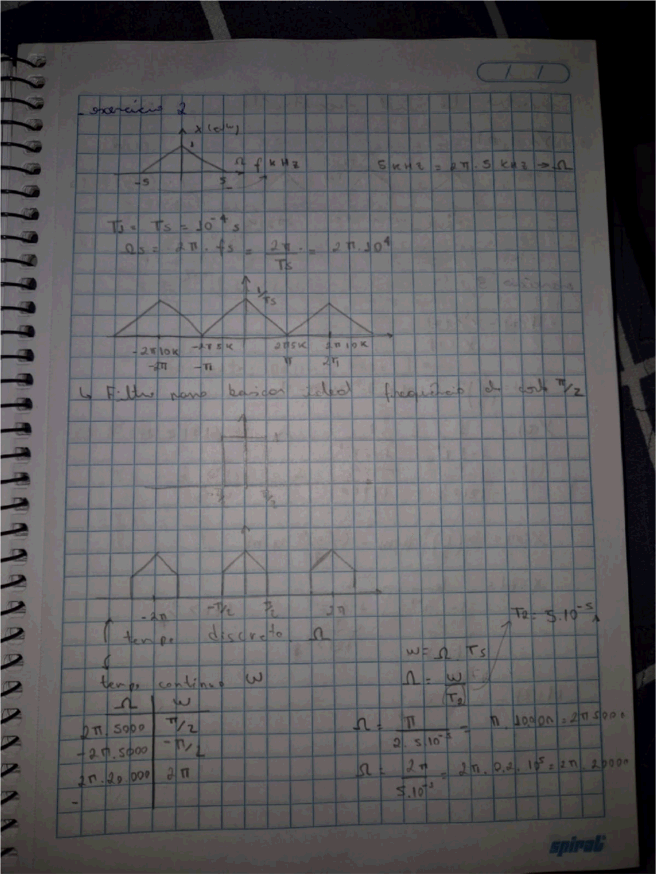 exercício 2
X(jω)
1
Ω f kHz
-5 5
5 kHz = 2π . 5 kHz → Ω
T1 = Ts = 10⁻⁴ s
Ωs = 2π . fs = 2π/Ts = 2π.10⁴
1/Ts
-2π10K -2π5K 2π5K 2π10K
-2π -π π 2π
↳ Filtro ideal frequência de corte π/2
π/2
-2π -π/2 π/2 2π
tempo discreto Ω
T2 = 5.10⁻⁵ s
tempo continuo W
w = Ω Ts
Ω = w/T2
Ω W
2π.5000 π/2
-2π.5000 -π/2
2π.20.000 2π
-
Ω = π/2.5.10⁻⁵ = π.10000 = 2π5000
Ω = 2π/5.10⁻⁵ = 2π.0,2.10⁵ = 2π.20000
spiral